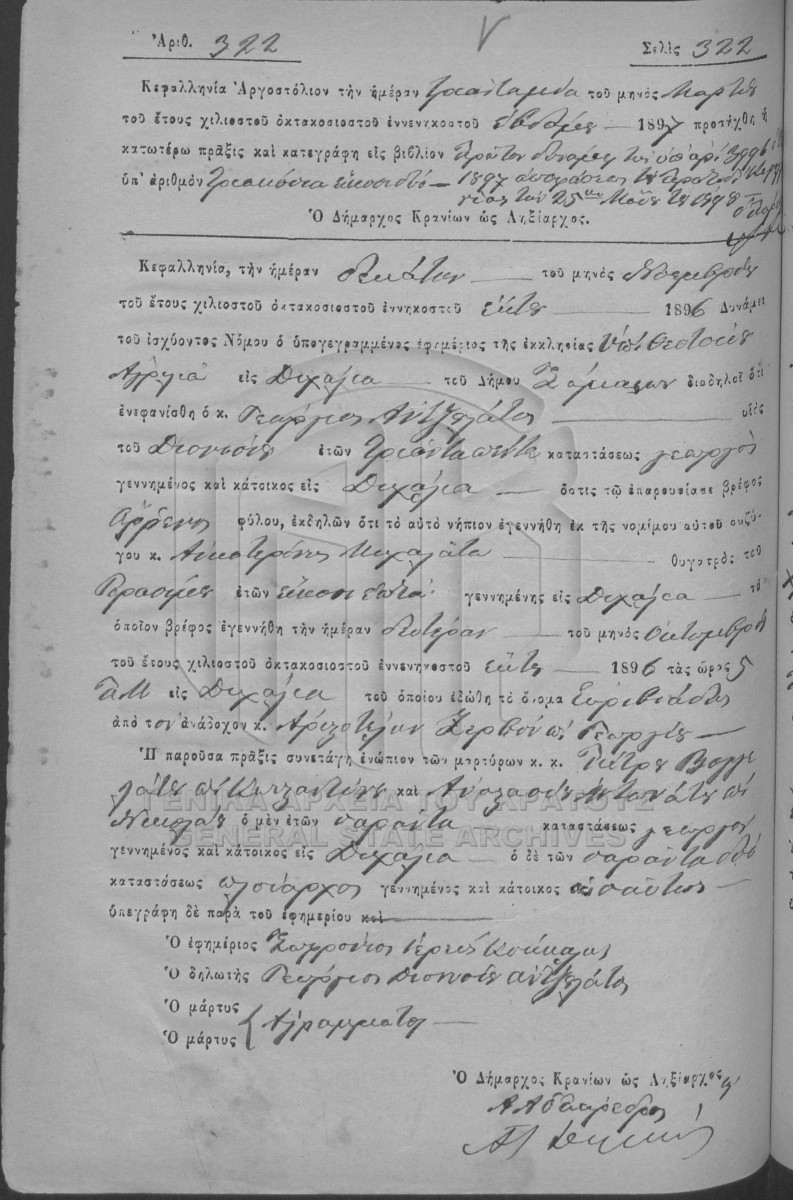 Ἀριθ. 322 Σελὶς 322
Κεφαλληνία Ἀργοστόλιον τὴν ἡμέραν τριάντα μία τοῦ μηνὸς Μαρτίου
τοῦ ἔτους χιλιοστοῦ ὀκτακοσιοστοῦ ἐννενηκοστοῦ ἑβδόμου 1897 προσήχθη ἡ
κατωτέρω πρᾶξις καὶ κατεγράφη εἰς βιβλίον
ὑπ' ἀριθμὸν τριακόσια εἴκοσι δύο 1897 ἀποφάσεως
τὴν 25 1898
Ὁ Δήμαρχος Κρανίων ὡς Ληξίαρχος.
Κεφαλληνία, τὴν ἡμέραν δεκάτην τοῦ μηνὸς Νοεμβρίου
τοῦ ἔτους χιλιοστοῦ ὀκτακοσιοστοῦ ἐννηκοστοῦ ἕκτου 1896 Δυνάμει
τοῦ ἰσχύοντος Νόμου ὁ ὑπογεγραμμένος ἐφημέριος τῆς ἐκκλησίας Ὑπ. Θεοτόκου
εἰς Διχάλια τοῦ Δήμου Σαμαίων διαδηλοῖ ὅτι
ἐνεφανίσθη ὁ κ. Γεώργιος Αντζελάτος υἱὸς
τοῦ Διονυσίου ἐτῶν τριάντα πέντε καταστάσεως γεωργὸς
γεννημένος καὶ κάτοικος εἰς Διχάλια ὅστις τῷ ἐπαρουσίασε βρέφος
ἄρρενος φύλου, ἐκδηλῶν ὅτι τὸ αὐτὸ νήπιον ἐγεννήθη ἐκ τῆς νομίμου αὐτοῦ συζύ-
γου κ. Αἰκατερίνης Μιχαλάτα θυγατρὸς τοῦ
Γερασίμου ἐτῶν εἴκοσι ἑπτὰ γεννημένης εἰς Διχάλια τὸ
ὁποῖον βρέφος ἐγεννήθη τὴν ἡμέραν δευτέραν τοῦ μηνὸς Ὀκτωμβρίου
τοῦ ἔτους χιλιοστοῦ ὀκτακοσιοστοῦ ἐννενηκοστοῦ ἕκτου 1896 τὰς ὥρας 5
Π.Μ εἰς Διχάλια τοῦ ὁποίου ἐδώθη τὸ ὄνομα Εὐριβιάδης
ἀπὸ τον ἀνάδοχον κ. Ἀριστοτέλην Ζερβὸν Γεωργίου
Ἡ παροῦσα πρᾶξις συνετάγη ἐνώπιον τῶν μαρτύρων κ. κ. Πέτρου
Κωνσταντίνου καὶ Ἀναστασίου Ἀντονάτου
Νικολάου ὁ μὲν ἐτῶν σαράντα καταστάσεως γεωργὸς
γεννημένος καὶ κάτοικος εἰς Διχάλια ὁ δὲ τῶν σαράντα δύο
καταστάσεως πλοίαρχος γεννημένος καὶ κάτοικος ὡσαύτως
ὑπεγράφη δὲ παρὰ τοῦ ἐφημερίου καὶ
Ὁ ἐφημέριος Σωφρόνιος ἱερεὺς
Ὁ δηλωτὴς Γεώργιος Διονυσίου Αντζελάτος
Ὁ μάρτυς
Ὁ μάρτυς Ἀγράμματοι
Ὁ Δήμαρχος Κρανίων ὡς Ληξίαρχος
ΓΕΝΙΚΑ ΑΡΧΕΙΑ ΤΟΥ ΚΡΑΤΟΥΣ
GENERAL STATE ARCHIVES